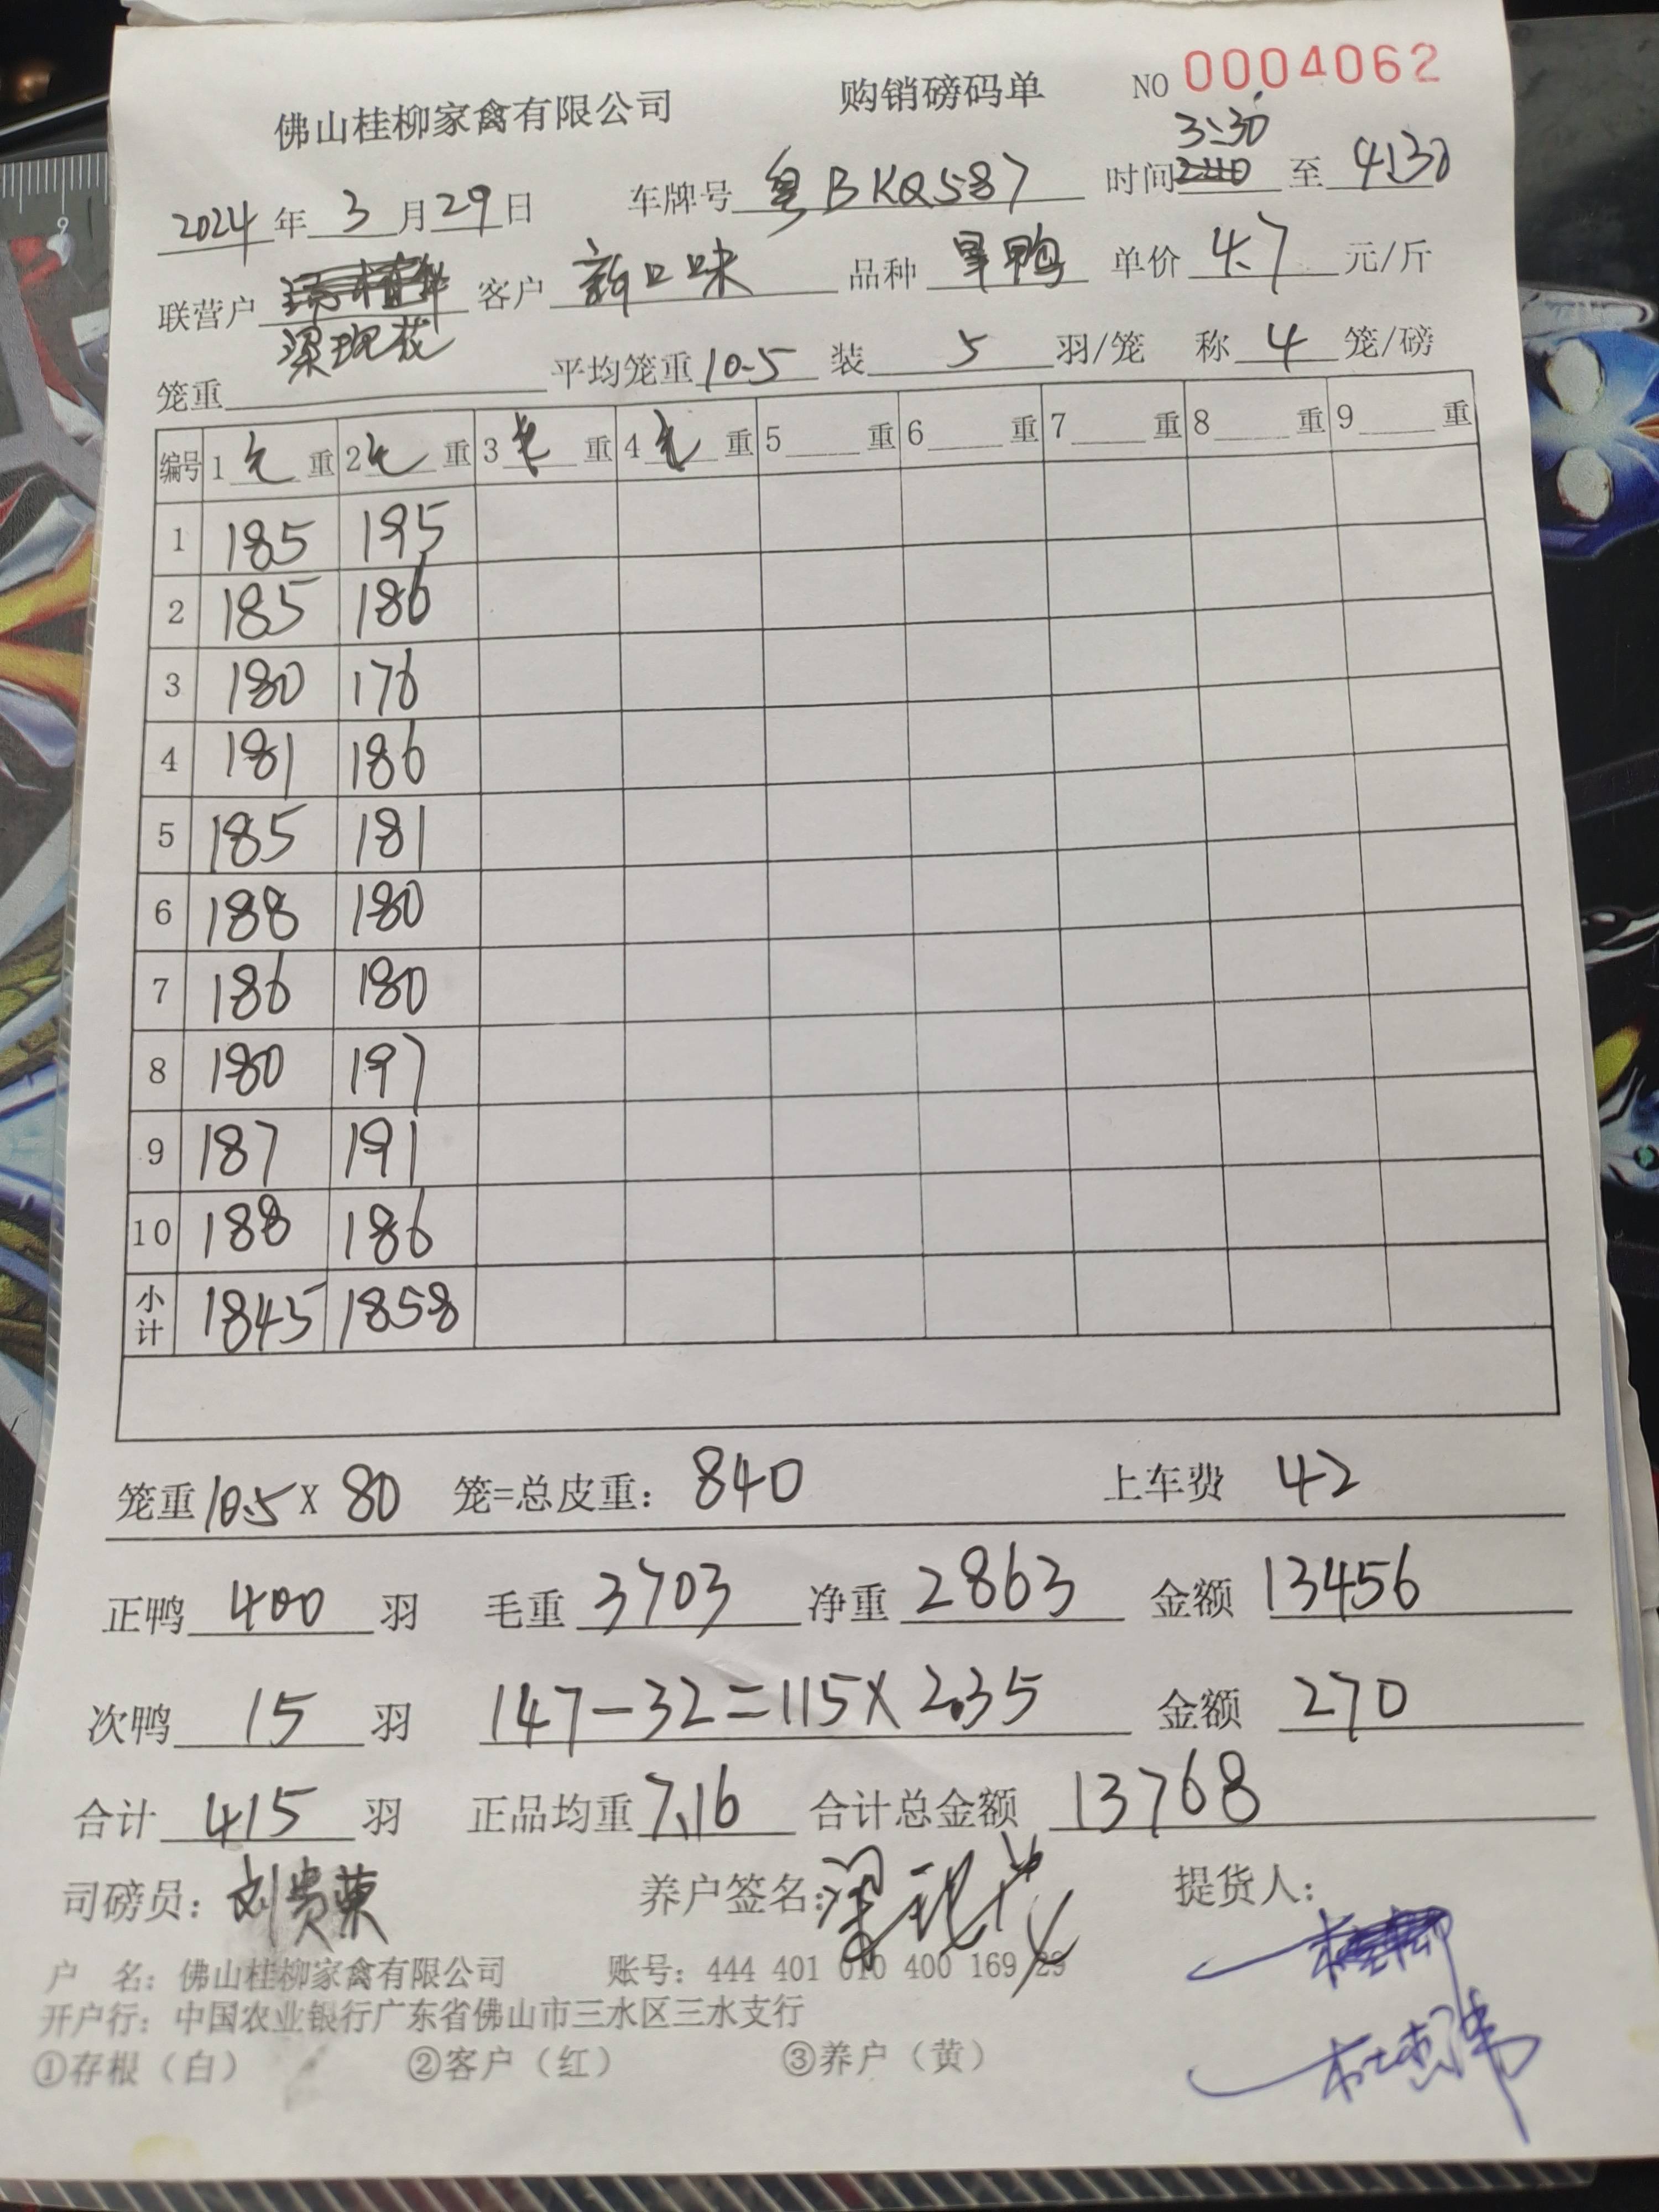 佛山桂柳家禽有限公司 购销磅码单 NO 0004062
3:30
2024 年 3 月 29 日 车牌号 粤BKQ587 时间 至 4:30
联营户 客户 新口味 品种 旱鸭 单价 4.7 元/斤
梁现花
笼重 平均笼重 10.5 装 5 羽/笼 称 4 笼/磅
编号 1 毛 重 2 毛 重 3 毛 重 4 毛 重 5 重 6 重 7 重 8 重 9 重
1 185 195
2 185 186
3 180 176
4 181 186
5 185 181
6 188 180
7 186 180
8 180 197
9 187 191
10 188 186
小计 1845 1858
笼重 10.5 X 80 笼=总皮重: 840 上车费 42
正鸭 400 羽 毛重 3703 净重 2863 金额 13456
次鸭 15 羽 147-32=115X2.35 金额 270
合计 415 羽 正品均重 7.16 合计总金额 13768
司磅员: 刘贵荣 养户签名: 梁现花 提货人:
户 名: 佛山桂柳家禽有限公司 账号: 444 401 010 400 169 29
开户行: 中国农业银行广东省佛山市三水区三水支行
①存根（白） ②客户（红） ③养户（黄）